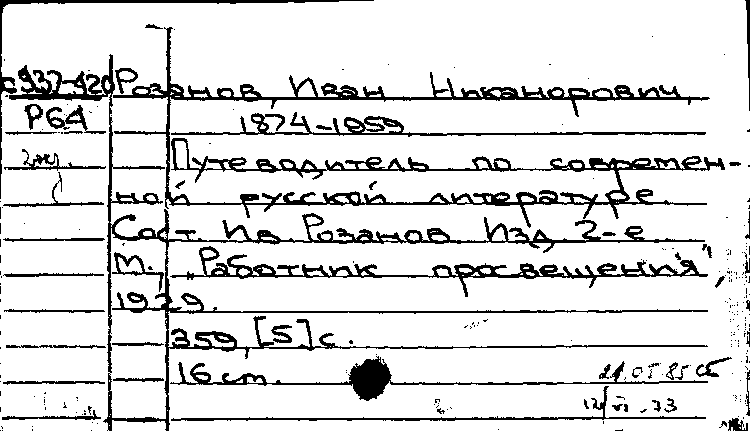 с937-420 Розанов, Иван Никанорович,
Р64 1874-1959.
2
Путеводитель по современ-
ной русской литературе.
Сост. Ив. Розанов. Изд. 2-е
М., „Работник просвещения",
1929.
359, [5] с.
16 см.
21.05.85